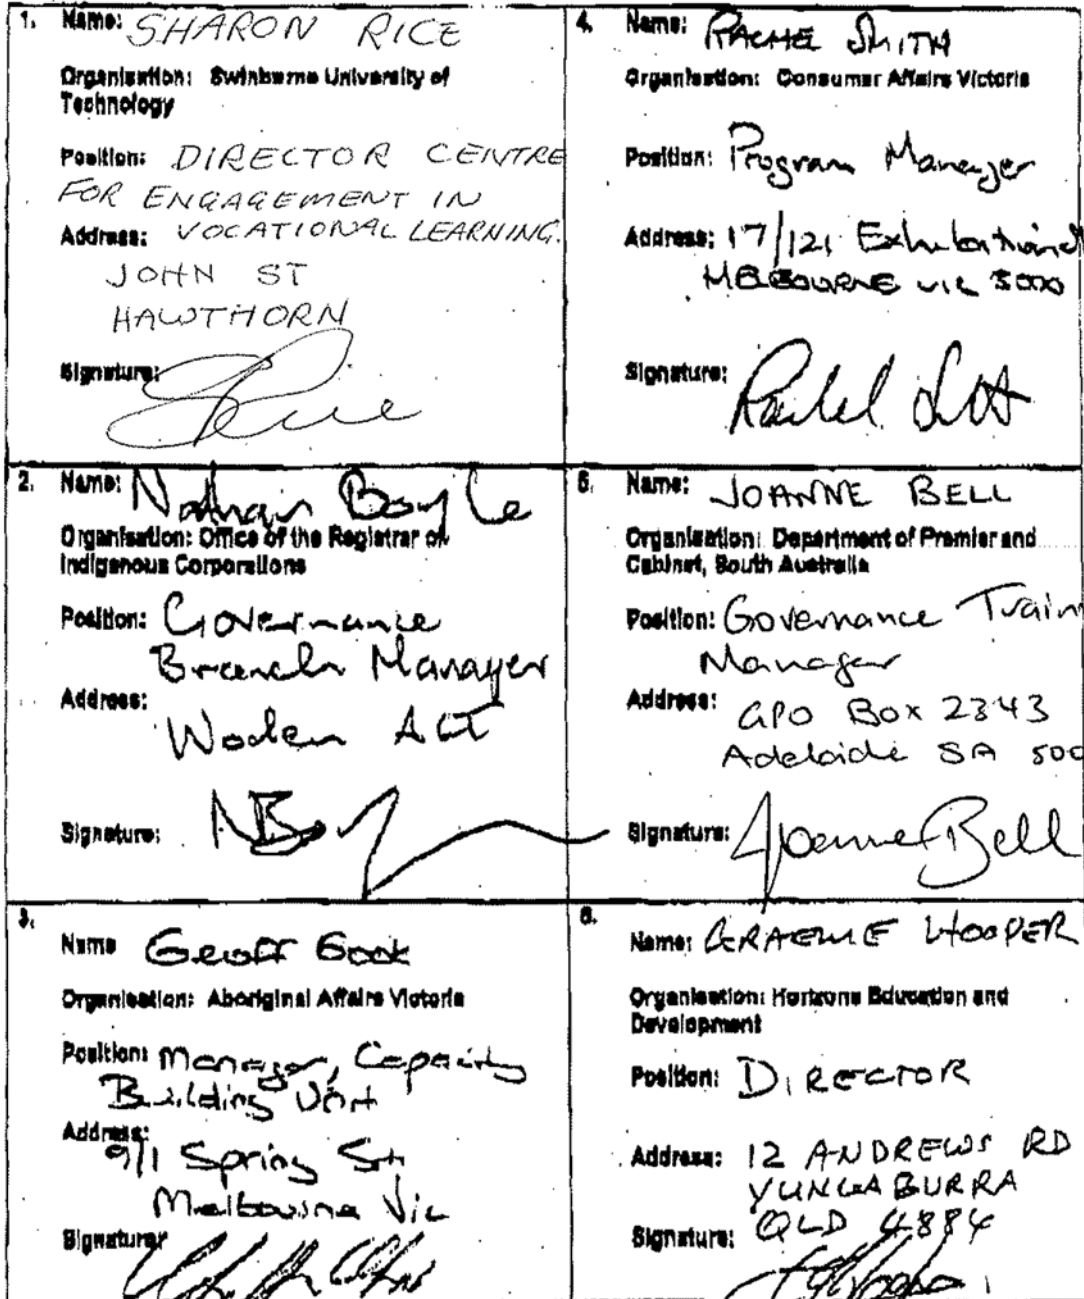 1. Name: SHARON RICE
Organisation: Swinburne University of
Technology
Position: DIRECTOR CENTRE
FOR ENGAGEMENT IN
Address: VOCATIONAL LEARNING.
JOHN ST
HAWTHORN
Signature:
2. Name: Nathan Boyle
Organisation: Office of the Registrar of
Indigenous Corporations
Position: Governance
Branch Manager
Address:
Woden ACT
Signature:
3.
Name Geoff Gook
Organisation: Aboriginal Affairs Victoria
Position: Manager, Capacity
Building Unit
Address:
9/1 Spring St,
Melbourne Vic
Signature
4. Name: RACHEL SMITH
Organisation: Consumer Affairs Victoria
Position: Program Manager
Address: 17/121 Exhibition
MELBOURNE VIC 3000
Signature:
5. Name: JOANNE BELL
Organisation: Department of Premier and
Cabinet, South Australia
Position: Governance Train
Manager
Address: GPO Box 2343
Adelaide SA 500
Signature: Joanne Bell
6.
Name: GRAEME HOOPER
Organisation: Horizons Education and
Development
Position: DIRECTOR
Address: 12 ANDREWS RD
YUNGABURRA
QLD 4884
Signature: